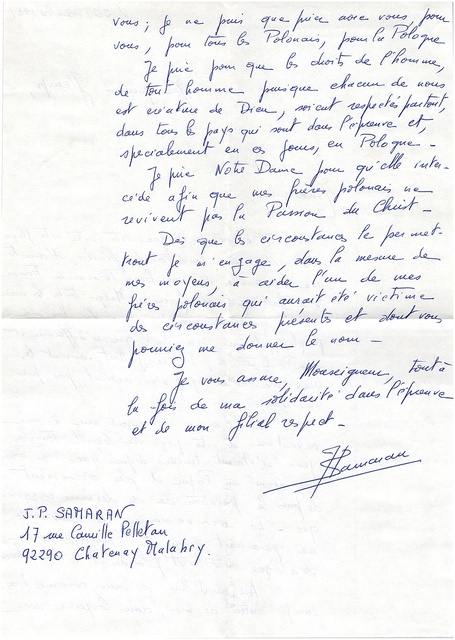 vous ; je ne puis que prier avec vous, pour
vous, pour tous les Polonais, pour la Pologne
Je prie pour que les droits de l'homme,
de tout homme puisque chacun de nous
est créature de Dieu, soient respectés partout,
dans tous les pays qui sont dans l'épreuve et,
spécialement en ces jours, en Pologne -
Je prie Notre Dame pour qu'elle inter-
cède afin que mes frères polonais ne
revivent pas la Passion du Christ -
Dès que les circonstances le permet-
tront je m'engage, dans la mesure de
mes moyens, à aider l'un de mes
frères polonais qui aurait été victime
des circonstances présentes et dont vous
pourriez me donner le nom -
Je vous assure, Monseigneur, tout à
la fois de ma solidarité dans l'épreuve
et de mon filial respect -
JPSamaran
J.P. SAMARAN
17 rue Camille Pelletan
92290 Chatenay Malabry.